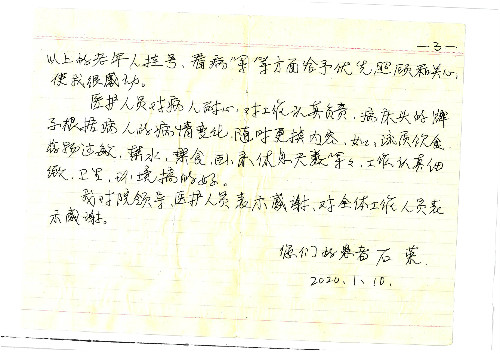 —3—
以上的老年人挂号、看病"等"等方面给予优先照顾和关心,
使我很感动。
医护人员对病人耐心,对工作认真负责,病床头的牌
子根据病人的病情变化,随时更换内容,如:流质饮食
药物过敏,禁水,禁食,卧床休息天数"等",工作认真细
微,卫生,环境搞的好。
我对院领导、医护人员表示感谢,对全体工作人员表
示感谢。
你们的患者 石
2020.1.10.